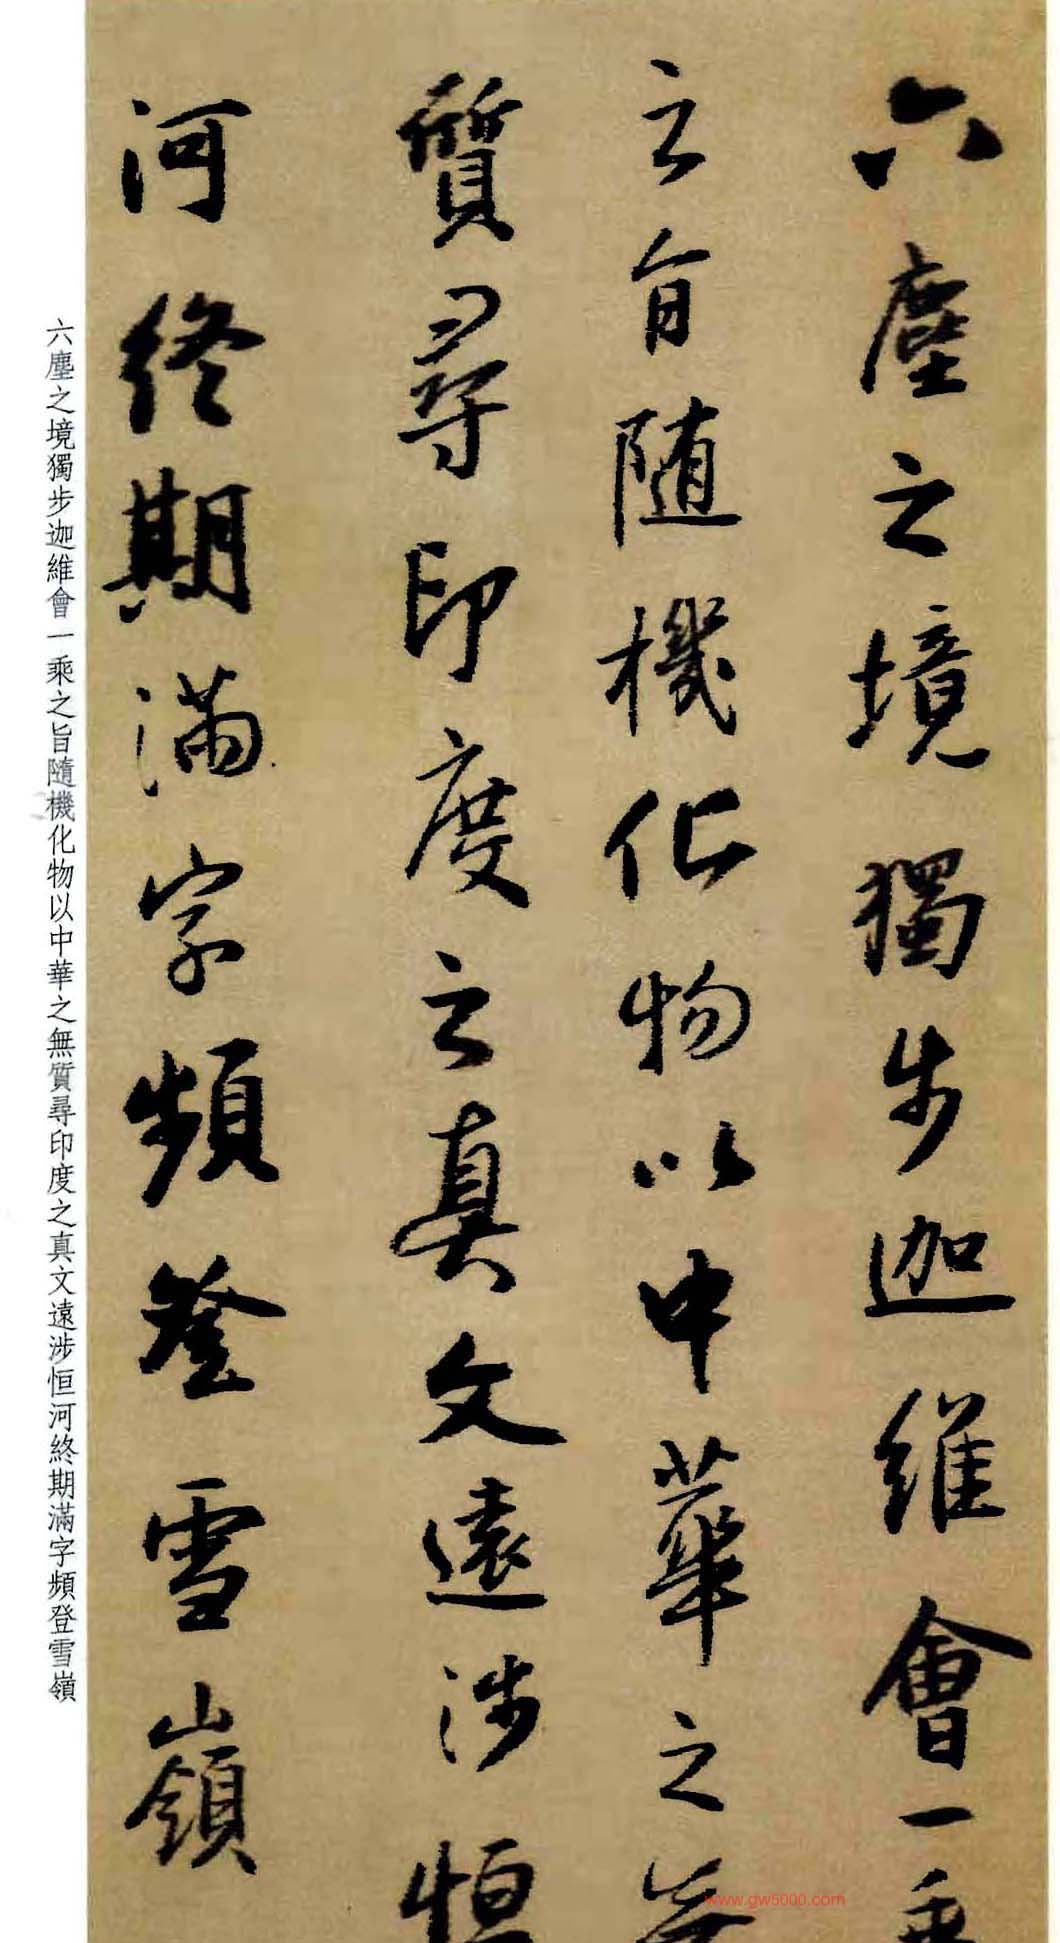 六塵之境獨步迦維會一乘
之旨隨機化物以中華之無
質尋印度之真文遠涉恒
河終期滿字頻登雪嶺
六塵之境獨步迦維會一乘之旨隨機化物以中華之無質尋印度之真文遠涉恒河終期滿字頻登雪嶺
www.gw5000.com